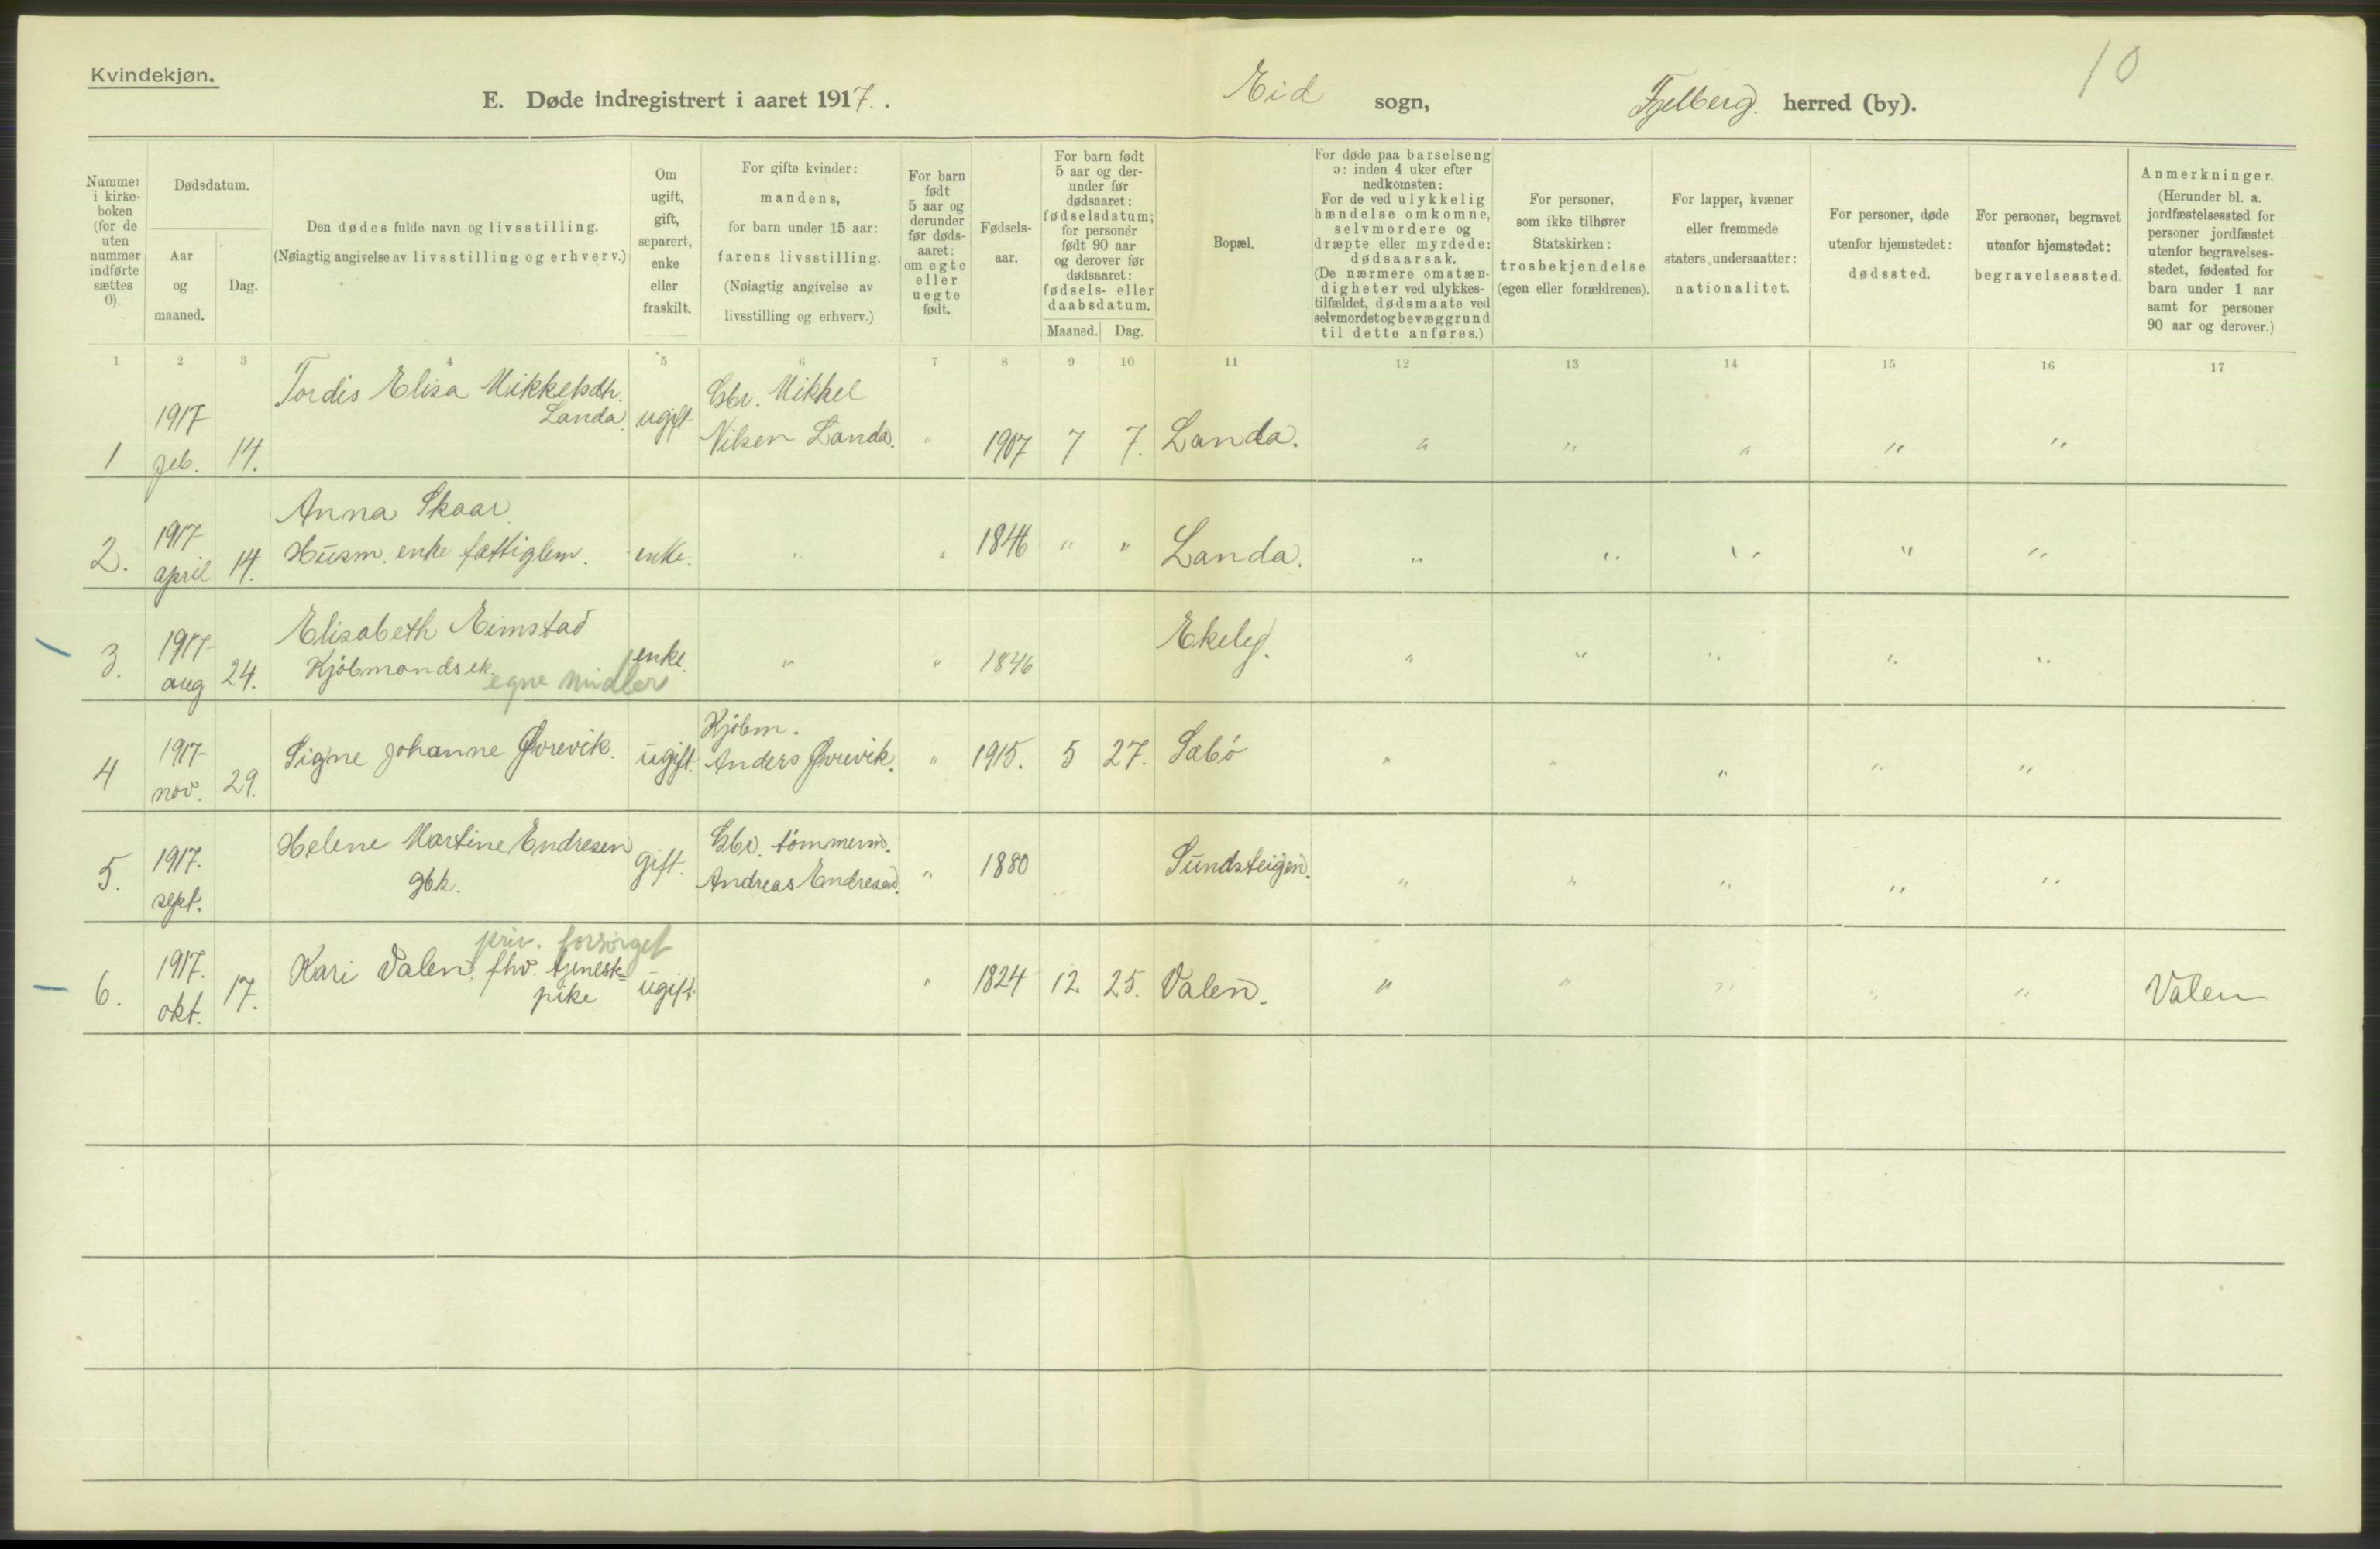 Kvindekjøn.
10
E. Døde indregistrert i aaret 1917. .
Eid sogn,
Fjelberg. herred (by).
Nummer
i kirke-
boken
(for de
uten
nummer
indførte
sættes
0).
Dødsdatum.
Aar
og
maaned.
Dag.
Den dødes fulde navn og livsstilling.
(Nøiagtig angivelse av livsstilling og erhverv.)
Om
ugift,
gift,
separert,
enke
eller
fraskilt.
For gifte kvinder:
mandens,
for barn under 15 aar:
farens livsstilling.
(Nøiagtig angivelse av
livsstilling og erhverv.)
For barn
født
5 aar og
derunder
før døds-
aaret:
om egte
eller
uegte
født.
Fødsels-
aar.
For barn født
5 aar og der-
under før
dødsaaret:
fødselsdatum;
for personer
født 90 aar
og derover før
dødsaaret:
fødsels- eller
daabsdatum.
Maaned. Dag.
Bopæl.
For døde paa barselseng
ɔ: inden 4 uker efter
nedkomsten:
For de ved ulykkelig
hændelse omkomne,
selvmordere og
dræpte eller myrdede:
dødsaarsak.
(De nærmere omstæn-
digheter ved ulykkes-
tilfældet, dødsmaate ved
selvmordet og bevæggrund
til dette anføres.)
For personer,
som ikke tilhører
Statskirken:
trosbekjendelse
(egen eller forældrenes).
For lapper, kvæner
eller fremmede
staters undersaatter:
nationalitet.
For personer, døde
utenfor hjemstedet:
dødssted.
For personer, begravet
utenfor hjemstedet:
begravelsessted.
Anmerkninger.
(Herunder bl. a.
jordfæstelsessted for
personer jordfæstet
utenfor begravelses-
stedet, fødested for
barn under 1 aar
samt for personer
90 aar og derover.)
1 2 3 4 5 6 7 8 9 10 11 12 13 14 15 16 17
Tordis Elisa Mikkelsdtr.
Landa.
1 1917 feb. 14. ugift Gbr. Mikkel
Nilsen Landa. " 1907 7 7. Landa. " " " " "
Anna Skaar
2. 1917 april 14. Husm. enke fattiglem. enke. " " 1846 " " Landa. " " " " "
Elisabeth Eimstad
3. 1917 aug 24. Kjöbmandsek. egne midler enke. " " 1846 Ekeleg. " " " " "
4 1917 nov. 29. Signe Johanne Øvrevik. ugift. Kjöbm.
Anders Øvrevik. " 1915. 5 27. Sæbö " " " " "
5. 1917. sept. Helene Martine Endresen
gbk. gift. Gbr. tömmerm.
Andreas Endresen. " 1880 Sundsteigen. " " " " "
priv. forsörget
6. 1917. okt. 17. Kari Valen, fhv. tjenest-
pike ugift. " 1824 12 25. Valen. " " " " " Valen